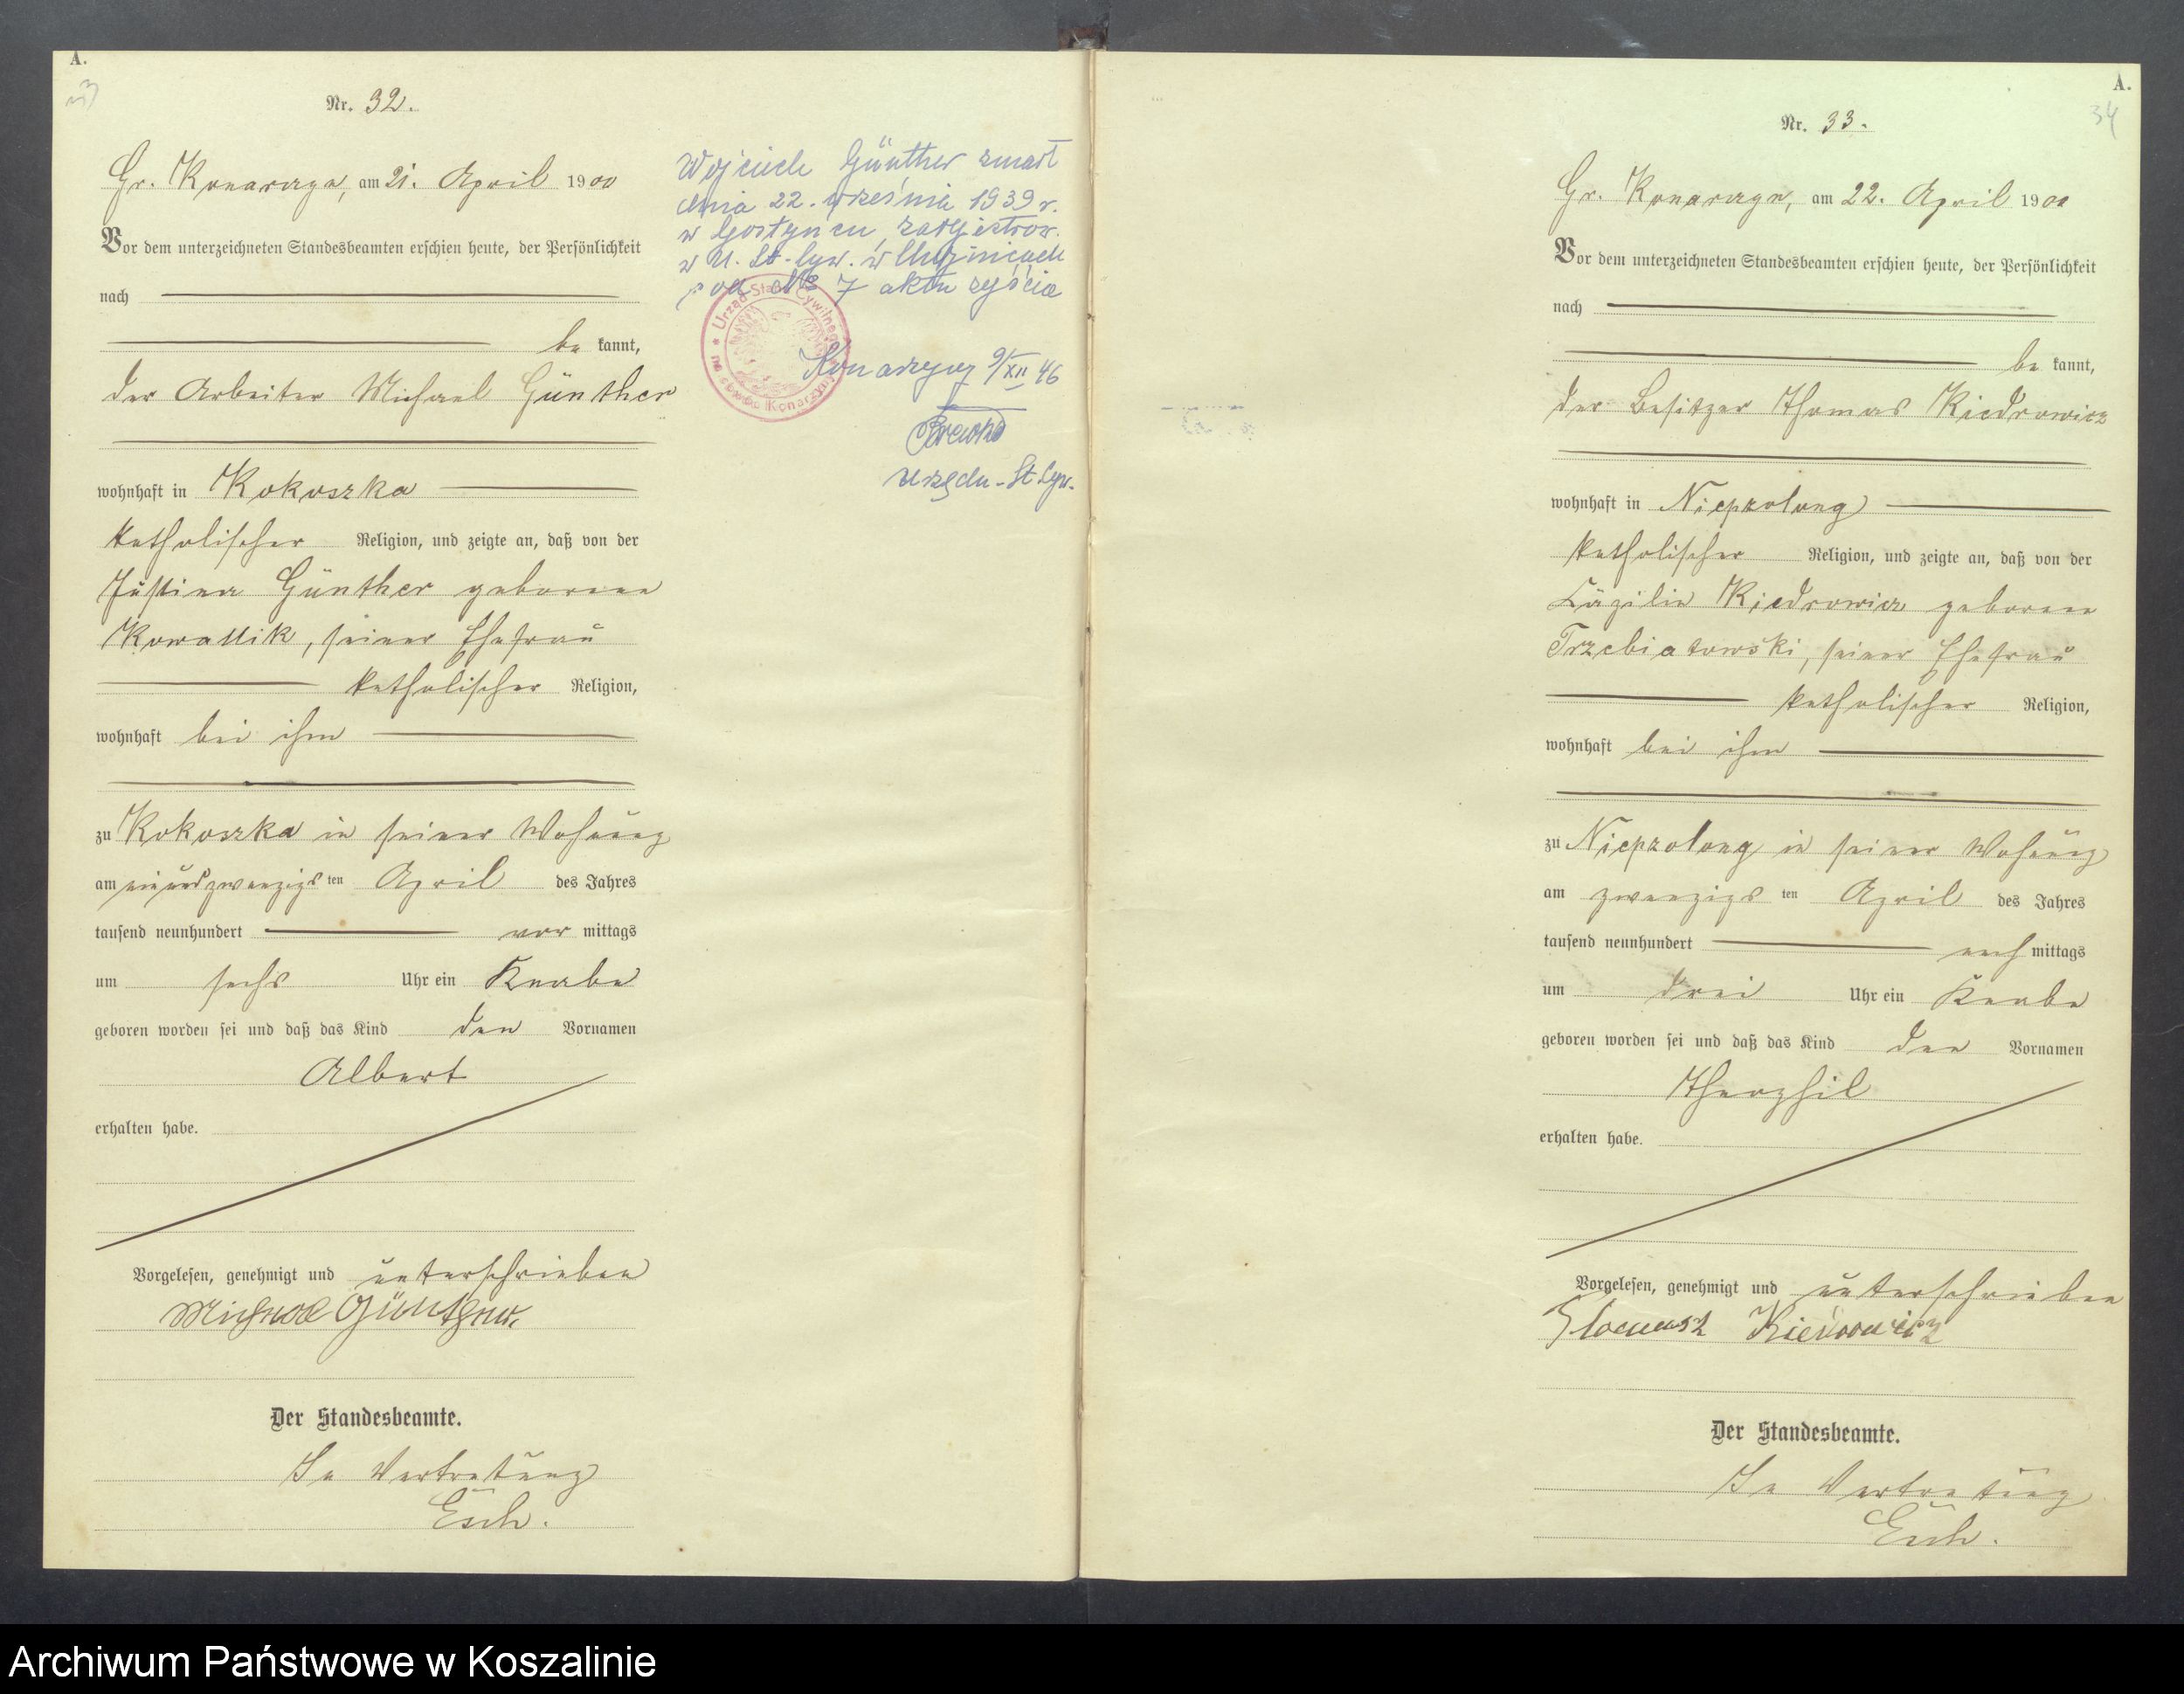 A.
Nr. 32.
Gr. Konarzyn, am 21. April 1900
Vor dem unterzeichneten Standesbeamten erschien heute, der Persönlichkeit
nach
be kannt,
der Arbeiter Michael Günther
wohnhaft in Kokoszka
katholischer Religion, und zeigte an, daß von der
Justina Günther geborene
Kowallik, seiner Ehefrau
katholischer Religion,
wohnhaft bei ihm
zu Kokoszka in seiner Wohnung
am einundzwanzigs ten April des Jahres
tausend neunhundert vor mittags
um sechs Uhr ein Knabe
geboren worden sei und daß das Kind den Vornamen
Albert
erhalten habe.
Vorgelesen, genehmigt und unterschrieben
Michael Günther.
Der Standesbeamte.
In Vertretung
Esch.
Wojciech Günther zmarł
dnia 22. września 1939 r.
w Gostyncu, zarejestrow.
w U. St. Cyw. w
pod № 7 aktu zejścia
Urząd Stanu Cywilnego
Konarzyny
Konarzyny 9/XII 46
Urzędn. St Cyw.
A.
34
Nr. 33.
Gr. Konarzyn, am 22. April 1900
Vor dem unterzeichneten Standesbeamten erschien heute, der Persönlichkeit
nach
be kannt,
der Besitzer Thomas Kiedrowicz
wohnhaft in Niepzolong
katholischer Religion, und zeigte an, daß von der
Cäzilie Kiedrowicz geborene
Trzebiatowski, seiner Ehefrau
katholischer Religion,
wohnhaft bei ihm
zu Niepzolong in seiner Wohnung
am zwanzigs ten April des Jahres
tausend neunhundert nach mittags
um drei Uhr ein Knabe
geboren worden sei und daß das Kind den Vornamen
Theophil
erhalten habe.
Vorgelesen, genehmigt und unterschrieben
Kiedrowicz
Der Standesbeamte.
In Vertretung
Esch.
Archiwum Państwowe w Koszalinie